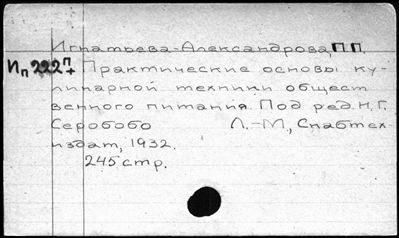 Игнатьева-Александрова, П.П.
Ип 222 п/7 Практические основы ку-
линарной техники общест
венного питания. Под ред. Н.Г.
Серобобо Л.-М., Снабтех-
издат, 1932.
245 стр.